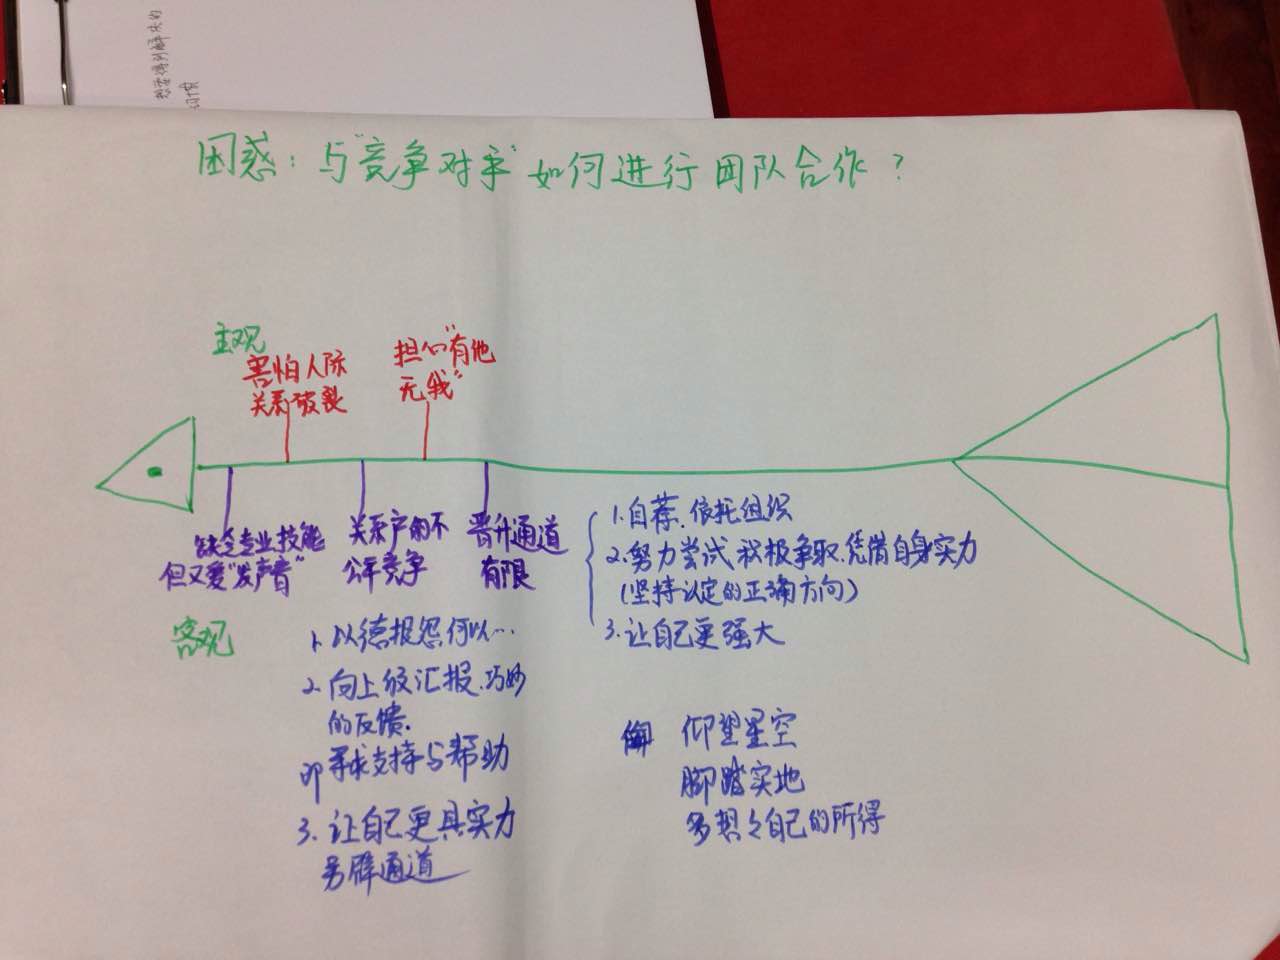 想要得到解决的
困惑：与“竞争对手”如何进行团队合作？
主观
害怕人际
关系破裂
担心“有他
无我”
缺乏专业技能
但又爱“发声音”
关系户的不
公平竞争
晋升通道
有限
1.自荐.依托组织
2.努力尝试 积极争取.凭借自身实力
(坚持认定的正确方向)
3.让自己更强大
客观
1.以德报怨何以…
2.向上级汇报.巧妙
的反馈.
即寻求支持与帮助
3.让自己更具实力
另辟通道
仰望星空
脚踏实地
多想想自己的所得